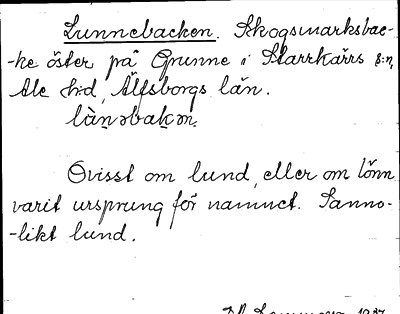 Lunnebacken. Skogsmarksbac-
-ke öster på Grunne i Starrkärrs s:n,
Ale h:d, Älfsborgs län.
lànəbakən.
Ovisst om lund, eller om lönn
varit ursprung för namnet. Sanno-
-likt lund.
1937